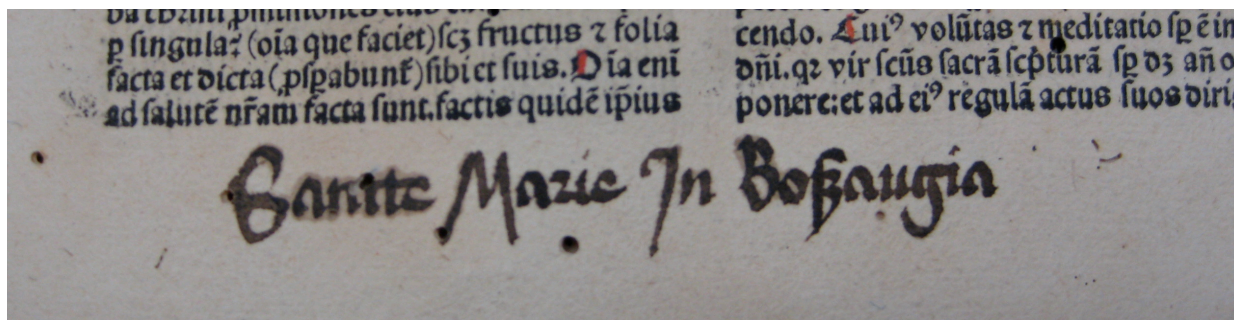 ꝑ singula⁊ (oīa que faciet) scꝫ fructus ⁊ folia
facta et dicta (ꝓsꝑabunt̄) sibi et suis. Oīa eni
ad salutē nr̄am facta sunt. factis quidē ip̄ius
cendo. Cuiꝰ volūtas ⁊ meditatio sꝑ ē in
dn̄i. qꝛ vir scūs sacrā scp̄turā sꝑ dꝫ
ponere: et ad eiꝰ regulā actus suos diri
Sancte Marie In Boßaugia